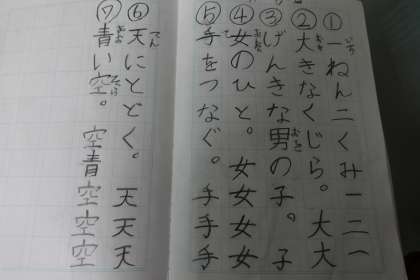 ① 一ねん二くみ一二一
② 大きなくじら。大大
③ げんきな男の子。子
④ 女のひと。女女女女
⑤ 手をつなぐ。手手手
⑥ 天にとどく。天天天
⑦ 青い空。空青空空空